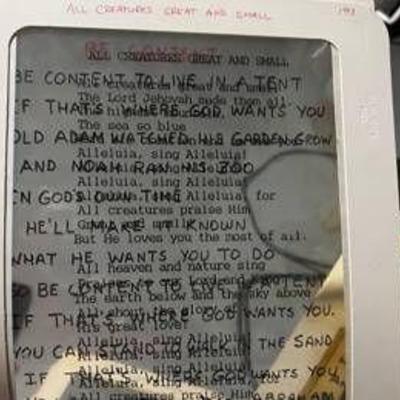 ALL CREATURES GREAT AND SMALL
BE CONTENT
ALL CREATURES GREAT AND SMALL
BE CONTENT TO LIVE IN A TENT
All creatures great and small
The Lord Jehovah made them all
IF THAT'S WHERE GOD WANTS YOU
The sea so blue
OLD ADAM WATCHED HIS GARDEN GROW
Alleluia, sing Alleluia!
AND NOAH RAN HIS ZOO
Alleluia, sing Alleluia
IN GOD'S OWN TIME
Alleluia, sing Alleluia, for
All creatures praise Him
HE'LL MAKE IT KNOWN
Great and small
But He loves you the most of all.
WHAT HE WANTS YOU TO DO
All heaven and nature sing
SO BE CONTENT TO LIVE IN A TENT
The earth below and the sky above
All shout the glory of
IF THAT'S WHERE GOD WANTS YOU.
His great love!
Alleluia, sing Alleluia
YOU CAN STAND UPON THE SAND
Alleluia, sing Alleluia
IF THAT'S WHERE GOD WANTS YOU
Alleluia, sing Alleluia, for
All creatures praise Him
ABRAHAM